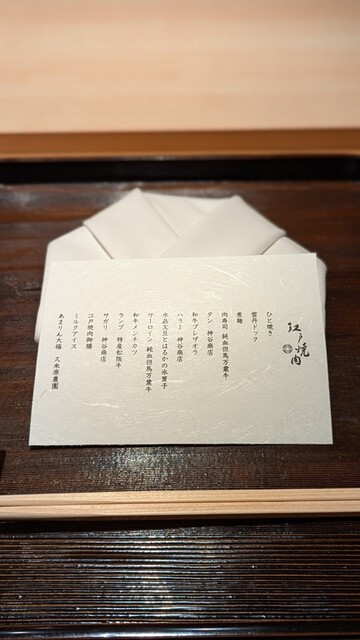 江戸焼肉
ひと焼き
雲丹ドック
煮麺
肉寿司 純血但馬万葉牛
タン 神谷商店
和牛ブレザオラ
ハラミ 神谷商店
水晶文旦とはるかの氷菓子
サーロイン 純血但馬万葉牛
和牛メンチカツ
ランプ 特産松阪牛
サガリ 神谷商店
江戸焼肉御膳
ミルクアイス
あまりん大福 久米原農園